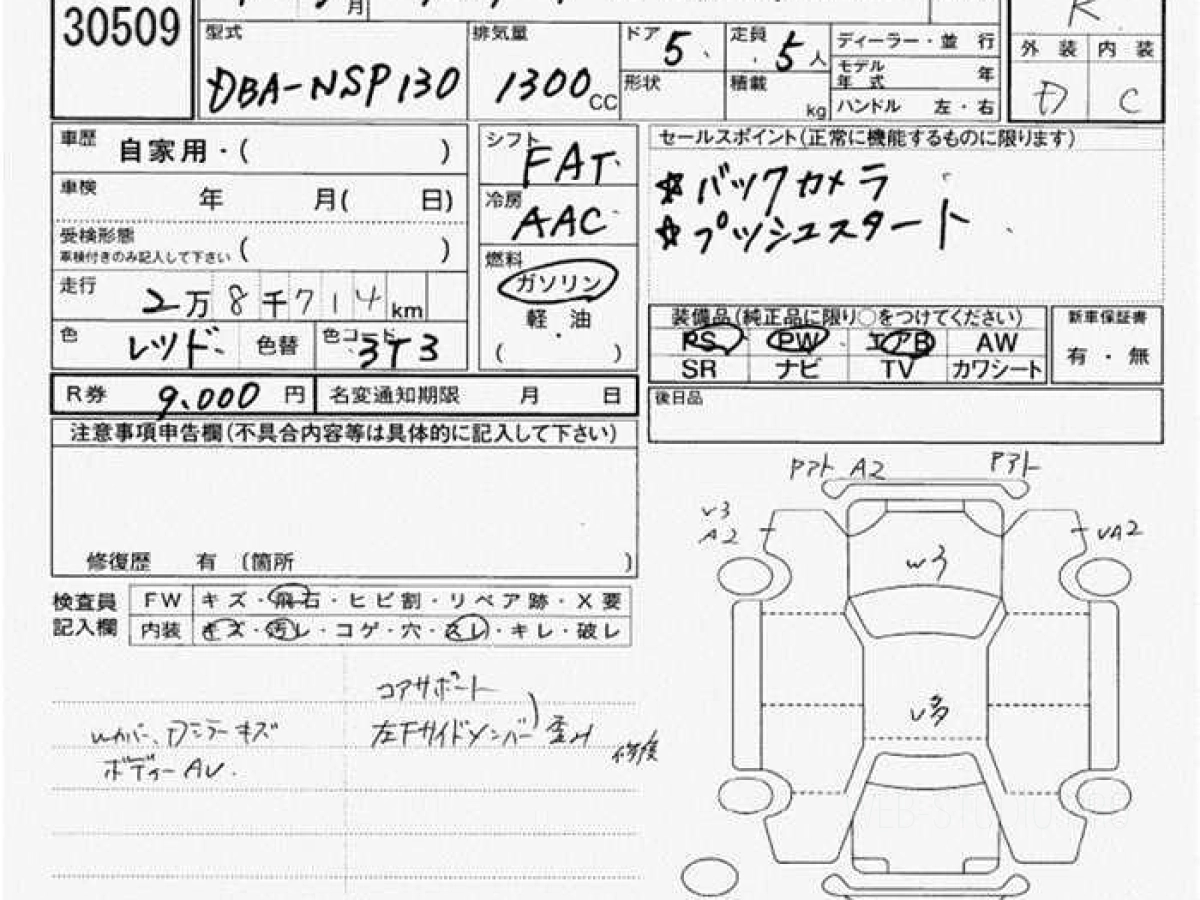 30509
月
R
型式 DBA-NSP130
排気量 1300 CC
ドア 5
定員 5 人
形状
積載 kg
ディーラー・並 行
モデル年式 年
ハンドル 左・右
外 装 内 装
D C
車歴 自家用・( )
車検 年 月( 日)
受検形態
車検付きのみ記入して下さい ( )
走行 2万8千714km
色 レッド 色替 色コード 3T3
シフト FAT
冷房 AAC
燃料
ガソリン
軽・油
( )
セールスポイント(正常に機能するものに限ります)
☆バックカメラ
☆プッシュスタート
装備品(純正品に限り○をつけてください)
PS PW エアB AW
SR ナビ TV カワシート
新車保証書
有・無
R券 9.000 円 名変通知期限 月 日
後日品
注意事項申告欄(不具合内容等は具体的に記入して下さい)
修復歴 有 〔箇所 〕
検査員記入欄
FW キズ・飛石・ヒビ割・リペア跡・X要
内装 キズ・汚レ・コゲ・穴・スレ・キレ・破レ
コアサポート
左Fサイドメンバー 歪み
修復
Wカバー、Dミラーキズ
ボディーAU.
Pアト A2 Pアト
U3
A2
UA2
W3
U多